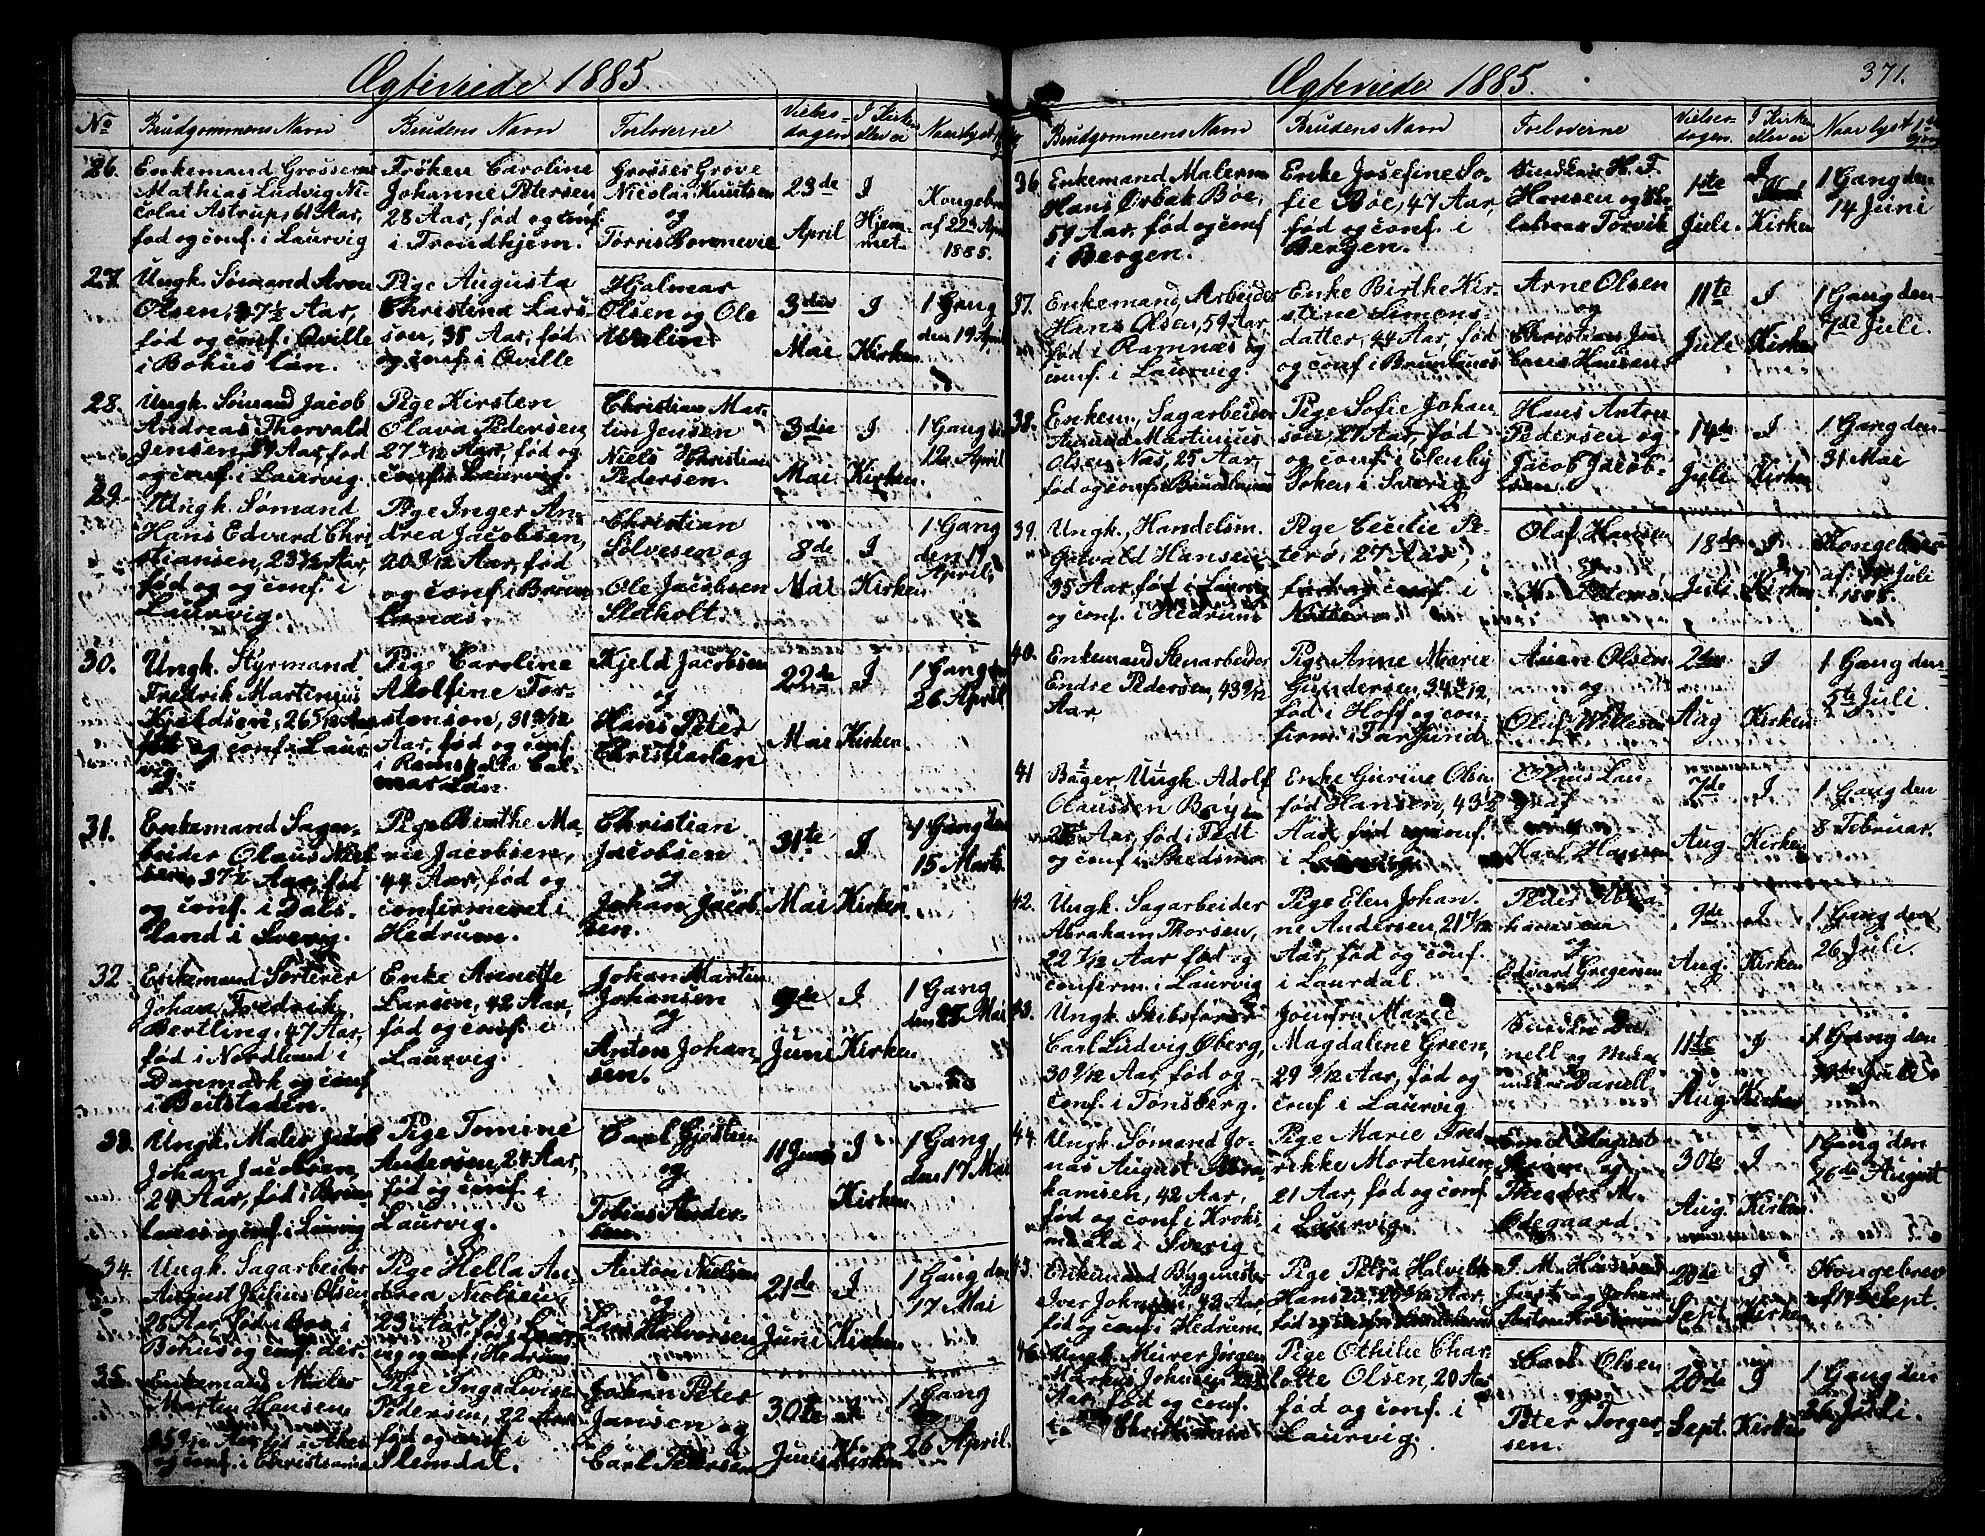 Ægteviede 1885
No
Brudgommens Navn
Brudens Navn
Forloverne
Vielsesdagen
I Kirken eller ei
Naar lyst
26.
Enkemand Grosserer
Mathias Ludvig Ni-
colai Astrup, 61 Aar,
fød og conf. i Laurvig
Frøken Caroline
Johanne Petersen
28 Aar, fød og conf.
i Trondhjem.
Grosser Grove
Nicolai Knutsen
og
Tørris
23de
April
I
Hjem-
met.
Kongebrev
af 22de Apr
1885.
27.
Ungk. Sømand Aron
Olsen, 27½ Aar,
fød og conf. i Qville
i Bohus län.
Pige Augusta
Christina Lars-
son, 38 Aar, fød
og conf. i Qville
Hjalmar
Olsen og Ole
3die
Mai
I
Kirken
1 Gang
den 19 April
28.
Ungk. Sømand Jacob
Andreas Thorvald
Jensen, Aar, fød
og conf. i Laurvig.
Pige Kirsten
Olava Pedersen,
27 4/12 Aar, fød og
conf. i Laurvig.
Christian Mar-
tin Jensen
Niels Christian
Pedersen.
3die
Mai
I
Kirken
1 Gang den
12 April
29.
Ungk. Sømand
Hans Edvard Chri-
stiansen, 23 Aar,
fød og og conf. i
Laurvig.
Pige Inger An-
drea Jacobsen,
20 Aar, fød
og conf. i Brun-
lanæs.
Christian
Sølvesen og
Ole Jacobsen
Sletholt.
8de
Mai
I
Kirken
1 Gang
den 19
April
30.
Ungk. Styrmand
Fredrik Martinius
Kjeldsen, 26 5/12 Aar
født og conf. i Laur-
vig.
Pige Caroline
Adolfine Tor-
stenson, 31 Aar, fød og conf.
i Cal-
mar Län.
Kjeld Jacobsen
og
Hans Peter
Christiansen
22de
Mai
I
Kirken
1 Gang den
26 April
31.
Enkemand Sagar-
beider Olaus Niel-
sen, 37½ Aar, fød
og conf. i Dals-
land i Sverig.
Pige Birthe Ma-
rie Jacobsen,
44 Aar, fød og
confirmeret i
Hedrum.
Christian
Jacobsen
og
Johan Jacob-
sen.
31te
Mai
I
Kirken
1 Gang den
15 Marts
32
Enkemand Sorterer
Johan Fredrik
Bertling, 47 Aar,
fød i Nordlund i
Danmark og conf
i Beitstaden.
Enke Annette
Larsen, 42 Aar,
fød og conf. i
Laurvig.
Johan Martin
Johansen
og
Anton Johan-
sen.
9de
Juni
I
Kirken
1 Gang
den 25 Mai
33.
Ungk. Maler Jacob
Johan Jacobsen,
24 Aar, fød i Brun-
lanæs og conf. i Laurvig
Pige Tomine
Andersen, 24 Aar,
fød og conf. i
Laurvig.
Carl Gjøsten
og
Tobias Ander-
sen.
11 Juni
I
Kirken
1 Gang
den 17 Mai
34.
Ungk. Sagarbeider
August Olsen
28 Aar fød i i
Bohus og conf. der.
Pige Hella An-
drea Nielsen
23 Aar, fød i Laur-
vig og conf. i Hedrum
Anton Nielsen
og
Halvorsen
21de
Juni
I
Kirken
1 Gang den
17 Mai
35.
Enkemand Maler
Martin Hansen
Aar, fød i Aker
og conf. i Christiania
Pige Inga Lovise
Pedersen, 22 Aar
fød og conf. i
Slemdal.
Johan Peter
Jansen og
Carl Pedersen
30te
Juni
I
Kirken
1 Gang
26 April.
Ægteviede 1885.
371.
Brudgommens Navn
Brudens Navn
Forloverne
Vielses-
dagen.
I Kirken
eller ei
Naar lyst 1ste
Gang
36.
Enkemand Malerm
Hans Ørbak Bøe,
59 Aar, fød og conf
i Bergen.
Enke Josefine So-
fie Bøe, 47 Aar,
fød og conf. i
Bergen.
H. F.
Hansen og
Torvik
1ste
Juli
I
Kirken
1 Gang den
14 Juni
37.
Enkemand, Arbeider
Hans Olsen, 59 Aar,
fød i Ramnæs og
conf. i Laurvig.
Enke Birthe Kir-
stine Simons-
datter, 44 Aar, fød
og conf i Brunlanæs
Arne Olsen
og
Christian Ju-
lius Hansen
11te
Juli
I
Kirken
1 Gang den
Juli.
38.
Enkem., Sagarbeider
Amund Martinius
Olsen Nas, 25 Aar,
fød og conf. i Brunlanæs
Pige Sofie Johan-
son, 27 Aar, fød
og conf. i Elenby
Soken i Sverig.
Hans Anton
Pedersen og
Jacob Jacob-
sen.
14de
Juli
I
Kirken
1 Gang den
31 Mai
39.
Ungk., Handelsm.
Gotvald Hansen
35 Aar, fød i Laurvig
conf. i Hedrum
Pige Cecilie Pe-
terø, 27 Aar,
fød og conf. i
Olaf Hansen
og
Peterø
18de
Juli
I
Kirken
Kongebrev
af Juli
1885.
40.
Enkemand Stenarbeider
Endre Pedersen, 43 9/12
Aar
Pige Anne Marie
Gundersen, 34 4/12,
fød i Hoff og con-
firm. i
Aslen Olsen
og
Oluf Willesen
2den
Aug
I
Kirken
1 Gang den
5te Juli.
41
Bager, Ungk. Adolf
Olaussen Bay
Aar, fød i Fedt
og conf. i Skedsmo
Enke Gurine Olsa
fød Hansen, 43½
Aar, fød og conf.
i Laurvig.
Olaus Lau-
og
Karl Hansen
7de
Aug.
I
Kirken
1 Gang den
8 Februar.
42.
Ungk. Sagarbeider
Abraham Thorsen,
22 7/12 Aar fød og
confirm. i Laurvig
Pige Elen Johan-
ne Andersen, 21 Aar, fød og conf.
i Laurdal.
Peder Abra-
hamsen
og
Edvard Gregersen
9de
Aug.
I
Kirken
1 Gang den
26 Juli.
43.
Ungk. Skibsfører
Carl Ludvig Øberg,
30 9/12 Aar, fød og
conf. i Tønsberg.
Jomfru Marie
Magdalene Green,
29 9/12 Aar, fød og
conf i Laurvig
11te
Aug
I
Kirken
1 Gang den
Juli
44.
Ungk. Sømand Jo-
nas August Abra-
hamsen, 42 Aar,
fød og conf i Kroks-
i Sverig
Pige Marie Fred-
rikke Mortensen
21 Aar, fød og conf
i Laurvig.
Emil August
og
Theodor M.
Ødegaard.
30te
Aug.
I
Kirken.
1 Gang den
26de August
45.
Enkemand Bygmester
Iver Johnsen, 42 Aar
fød og conf. i Hedrum
Pige Petra Halvikke
Hansen, Aar,
fød og
I. M. Hansen
og Johan
Anton Kristiansen
20de
Sept.
I
Kirken
Kongebrev
af Sept.
46.
Ungk. Murer Jørgen
Markus Johnsen
Aar, fød og conf.
i Christiania
Pige Othilie Char-
lotte Olsen, 20 Aar
fød og conf. i
Laurvig.
Carl Olsen
og
Peter Torger-
sen.
20de
Sept.
I
Kirken
1 Gang den
26 Juli.